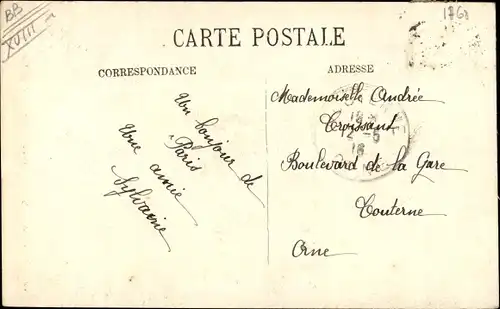 BB
XVIII
1768
CARTE POSTALE
CORRESPONDANCE
Un bonjour de
Paris
Une amie
Sylvanie
ADRESSE
Mademoiselle Andrée
Croissant
Boulevard de la Gare
Couterne
Orne